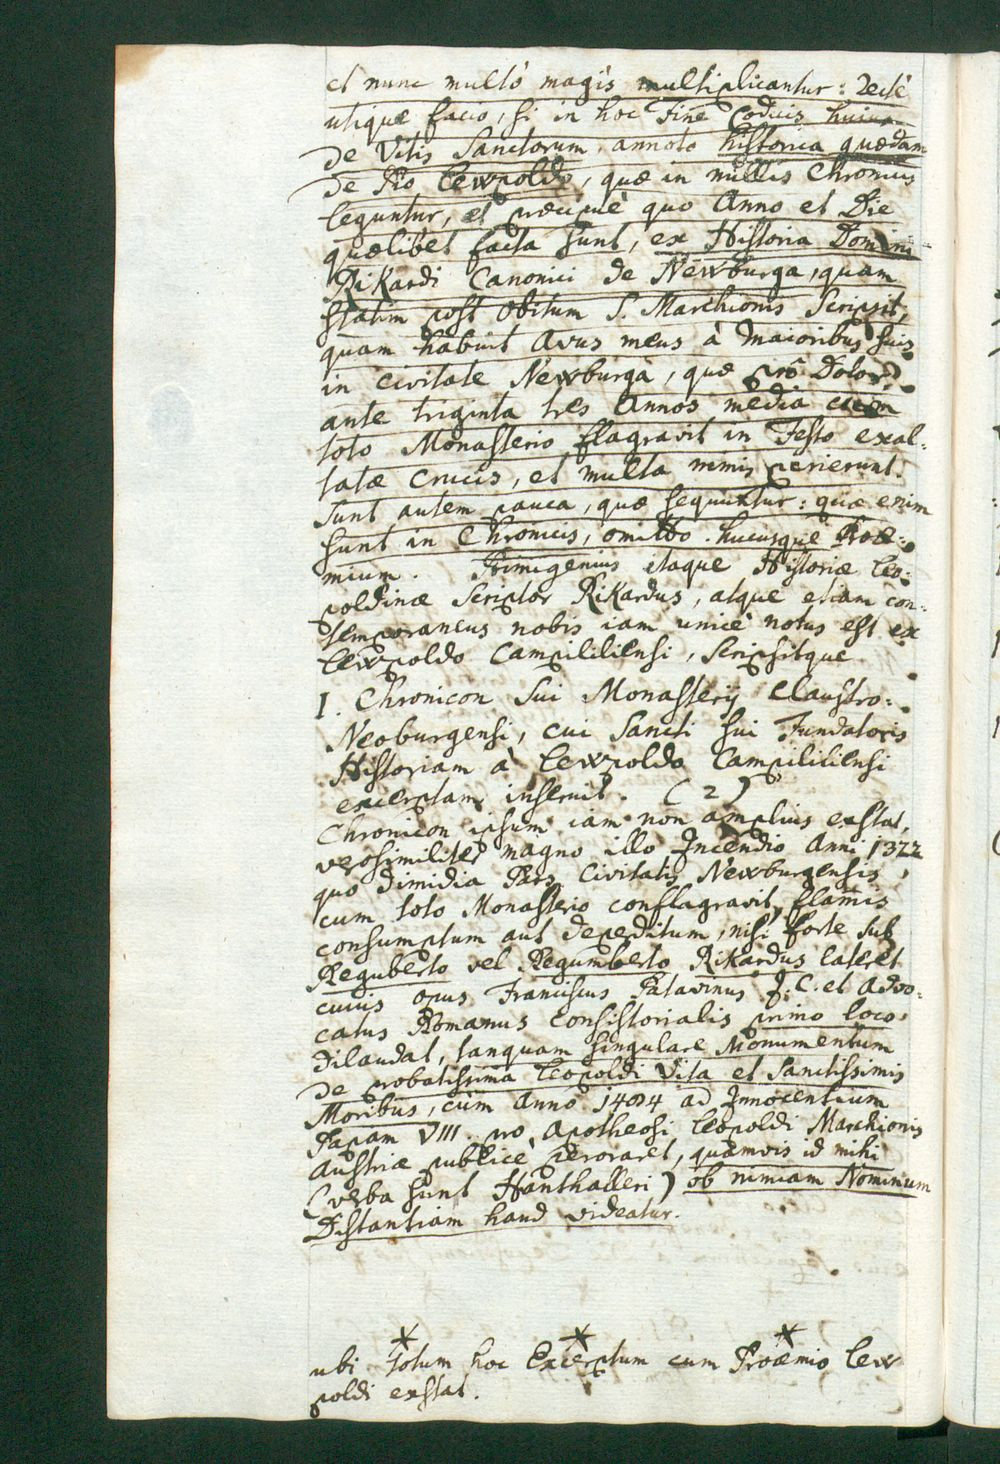 et nunc multò magis multiplicantur: recte
utique facio, si in hoc Fine Codicis huius
de Vitis Sanctorum, annoto historica quædam
de Pio Lewpoldo, quæ in nullis Chronicis
leguntur, et præcipuè quo Anno et Die
quælibet facta sunt, ex Historia Domini
Rikardi Canonici de Newburga, quam
statim post Obitum S. Marchionis Scripsit,
quam habuit Avus meus à Maioribus suis
in civitate Newburga, quæ prô Dolor!
ante triginta tres Annos media cum
toto Monasterio flagravit in Festo exal:
tatæ Crucis, et multa nimis perierunt.
Sunt autem pauca, quæ sequuntur: quæ enim
sunt in Chronicis, omitto. hucusque Proœ:
mium. Primigenius itaque Historiæ Leo:
poldinæ Scriptor Rikardus, atque etiam con:
temporaneus nobis iam unicè notus est ex
Lewpoldo Campililiensi, Scripsitque
I. Chronicon sui Monasterij Claustro:
Neoburgensi, cui Sancti sui Fundatoris
Historiam à Lewpoldo Campililiensi
excerptam inseruit. (2)
Chronicon ipsum iam non amplius exstat,
verosimiliter magno illo Incendio Anni 1322
quo dimidia Pars Civitatis Newburgensis,
cum toto Monasterio conflagravit, flamis
consumptum aut deperditum, nisi forte sub
Reguberto vel Regumberto Rikardus lateret
cuius opus Franciscus Patavinus J. C. et Advo:
catus Romanus Consistorialis primo loco
dilaudat, tanquam singulare Monumentum
de probatissima Leopoldi Vita et Sanctissimis
Moribus, cùm Anno 1484 ad Innocentium
Papam VIII. pro Apotheosi Leopoldi Marchionis
Austriæ publicè peroraret, quamvis id mihi
(verba sunt Hanthalleri) ob nimiam Nominum
Distantiam haud videatur.
* * *
ubi totum hoc Excerptum cum Proœmio Lew
poldi exstat.